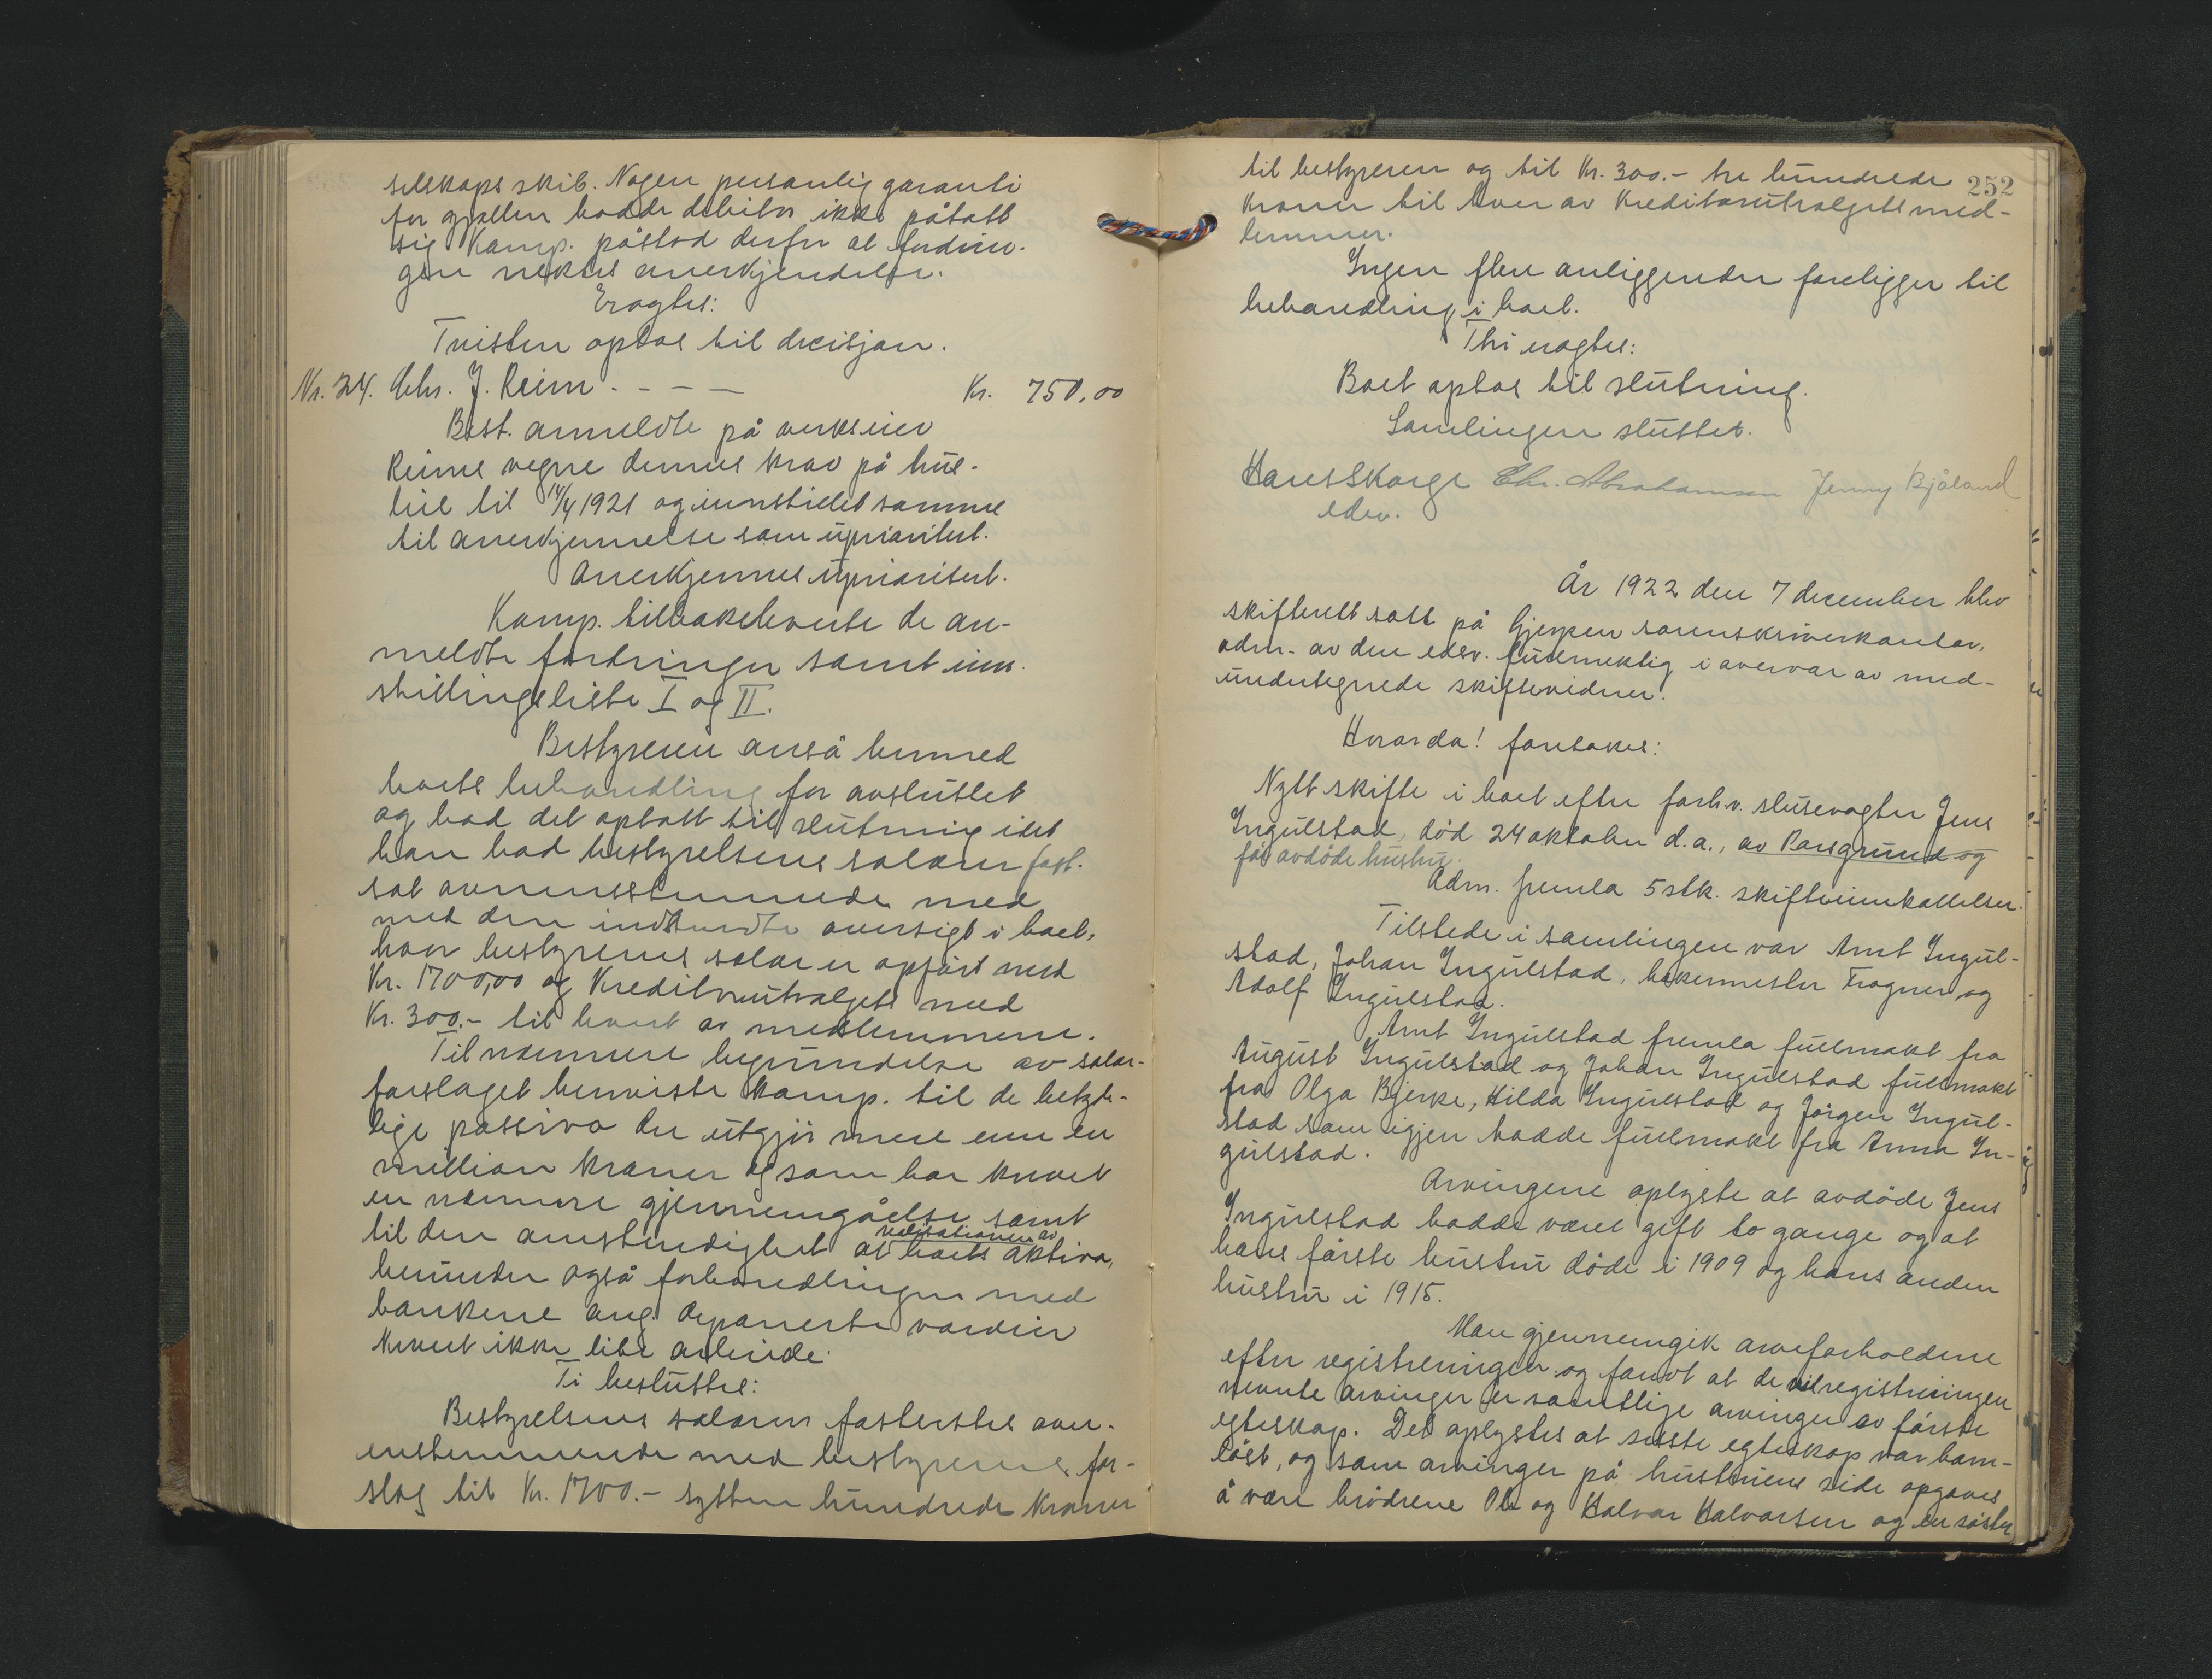 selskaps skib. Nogen personlig garanti
for gjælden hadde debitor ikke påtatt
sig. Komp. påstod derfor at fordrin-
gen nektes anerkjendelse.
Eragtes:
Tvisten optas til decisjon.
Nr. 24. Chr. J. Reim - - - - Kr. 750,00
Best. anmeldte på verkseier
Reims vegne dennes krav på hus-
leie til 14/4 1921 og innstillet samme
til anerkjennelse som uprioritert.
Anerkjennes uprioritert.
Komp. tilbakeleverte de an-
meldte fordringer samt inn-
stillingsliste I og II.
Bestyreren anså hermed
boets behandling for avsluttet
og bad det optatt til slutning idet
han bad bestyrelsens salærer fast-
sat overensstemmende med
med den indsendte oversigt i boet,
hvor bestyrerens salær er opført med
Kr. 1700,00 og Kreditorutvalgets med
Kr. 300.- til hvert av medlemmene.
Til nærmere begrundelse av salær-
forslaget henviste komp. til de betyde-
lige passiva der utgjør mere enn en
million kroner og som har krevet
en nærmere gjennemgåelse samt
til den omstendighet at realisationen av
boets aktiva,
herunder også forhandlinger med
bankene ang. deponerte værdier
krevet ikke lite arbeide.
Ti besluttes:
Bestyrelsens salærer fastsettes over-
ensstemmende med bestyrerens for-
slag til Kr. 1700.- sytten hundrede kroner
252
til bestyreren og til Kr. 300.- tre hundrede
kroner til hver av Kreditorutvalgets med-
lemmer.
Ingen flere anliggender foreligger til
behandling i boet.
Thi eragtes:
Boet optas til slutning.
Samlingen sluttet.
Hans Skorge Chr. Abrahamsen Jenny Bjåland
edsv.
År 1922 den 7 december blev
skifterett satt på Gjerpen sorenskriverkontor,
adm. av den edsv. fullmektig i overvær av med-
undertegnede skiftevidner.
Hvorda! foretokes:
Nytt skifte i boet efter forhv. slusevogter Jens
Ingulstad, død 24 oktober d.a., av Porsgrund og
før avdøde hustru.
Adm. fremla 5 stk. skifteinnkallelser.
Tilstede i samlingen var Arnt Ingul-
stad, Johan Ingulstad, bakermester Fragner og
Adolf Ingulstad.
Arnt Ingulstad fremla fullmakt fra
August Ingulstad og Johan Ingulstad fullmakt
fra Olga Bjerke, Hilda Ingulstad og Jørgen Ingul-
stad som igjen hadde fullmakt fra Anna In-
gulstad.
Arvingene oplyste at avdøde Jens
Ingulstad hadde været gift to gange og at
hans første hustru døde i 1909 og hans anden
hustru i 1915.
Man gjennemgik arveforholdene
efter registreringen og fandt at de ved registreringen
nevnte arvinger er samtlige arvinger av første
egteskap. Det oplystes at siste egteskap var barn-
løst, og som arvinger på hustruens side opgaves
å være brødrene Ole og Halvor Halvorsen og en søster